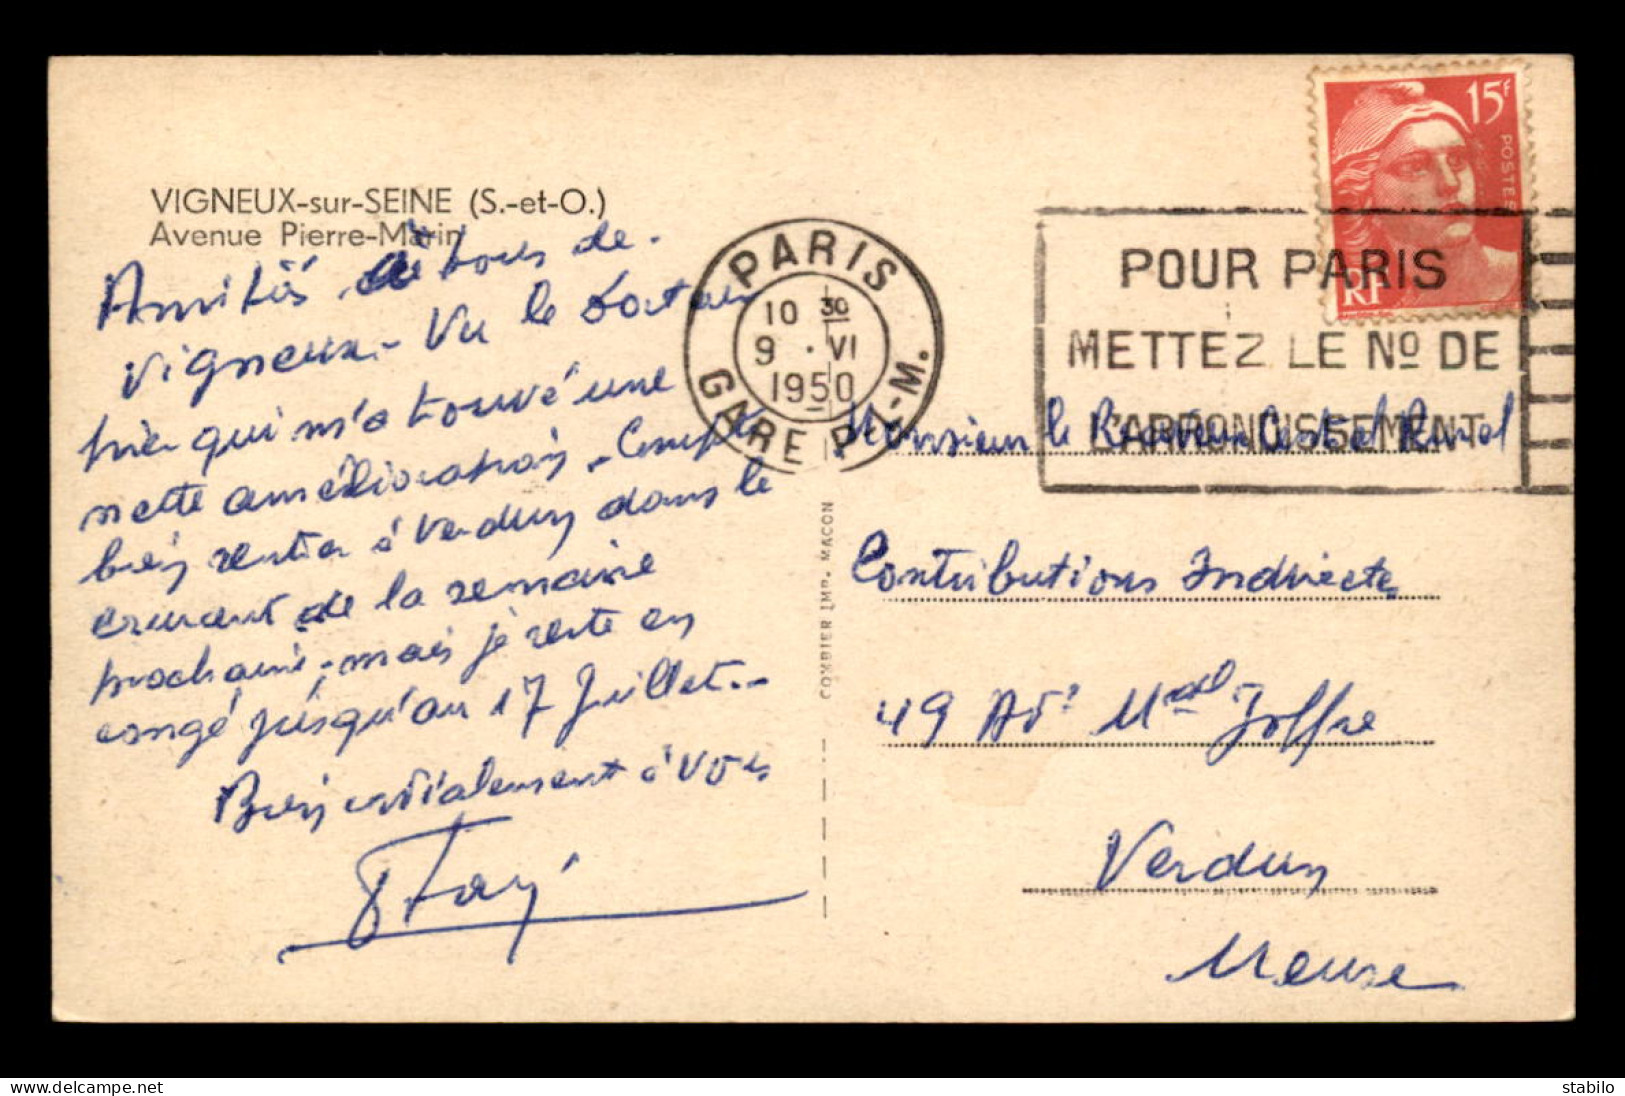 VIGNEUX-sur-SEINE (S.-et-O.)
Avenue Pierre-Marin
Amitiés à tous de
Vigneux - Vu le docteur
hier qui m'a trouvé une
nette amélioration - Compte
bien rentrer à Verdun dans le
courant de la semaine
prochaine, mais je reste en
congé jusqu'au 17 Juillet.-
Bien cordialement à vous
PARIS
10 30
9 · VI
1950
GARE P.L.-M.
POUR PARIS
METTEZ LE No DE
L'ARRONDISSEMENT
15F
POSTES
RF
Monsieur le Receveur Central Rural
Contributions Indirectes
49 Av. Mal Joffre
Verdun
Meuse
COMBIER IMP. MACON
stabilo